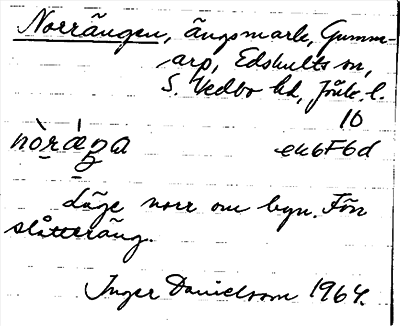 Norrängen, ängsmark, Gumm-
arp, Edshults sn,
S. Vedbo hd, Jönk. l.
10
nòráŋa ek6F6d
Läge norr om byn. Förr
slåtteräng.
Inger Danielsson 1964.